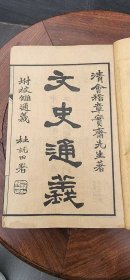 清會稽章實齋先生著
文史通義
坿校讎通義
杜就田署